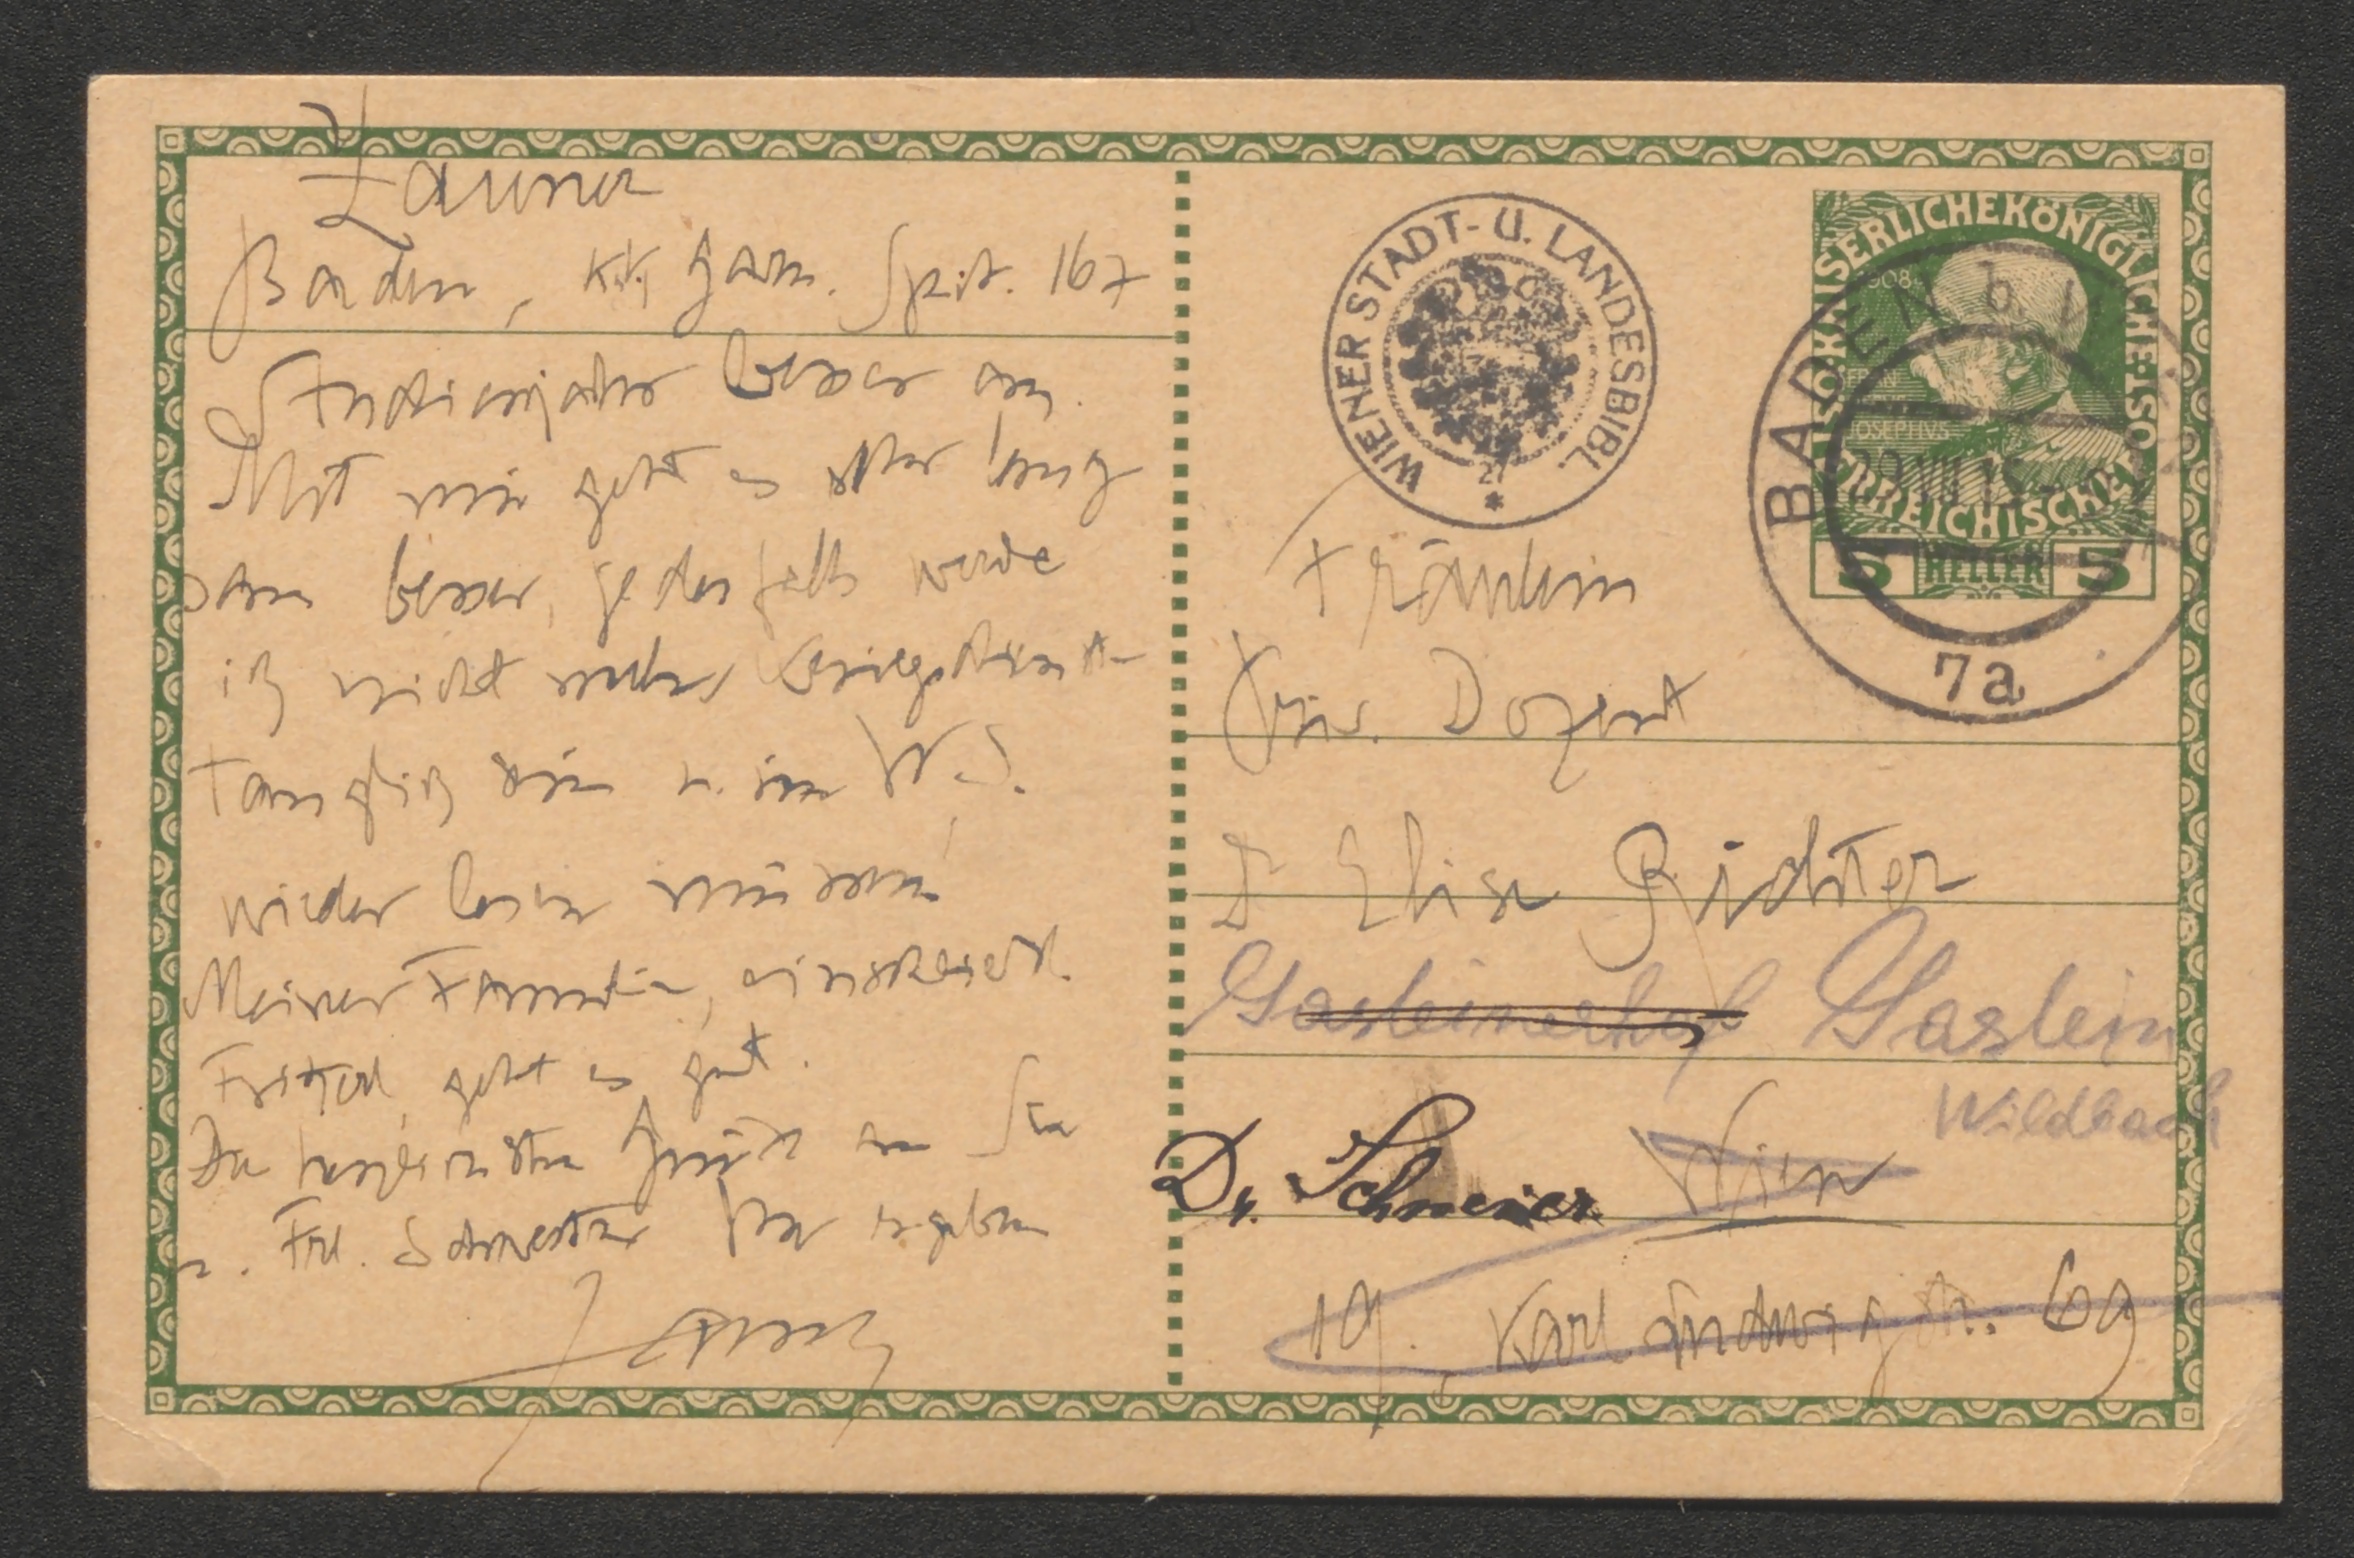 Zauner
Baden, k.k. Garn. Spit. 167
Studienjahr besser an.
Mit mir geht es sehr lang
sam besser, jedenfalls werde
ich nicht mehr kriegsdienst-
tauglich sein u. im W.S.
wieder lesen müssen!
Meiner Familie, einschliessl.
Fritzerl, geht es gut.
Die herzlichsten Grüße an Sie
u. Frl. Schwester Ihr ergeben
WIENER STADT- U. LANDESBIBL.
21
KAISERLICHE KÖNIGLICHE ÖSTERREICHISCHE
1908
JOSEPHVS
5 HELLER 5
BADEN b. WIEN
7a
Fräulein
Priv. Dozent
Dr Elise Richter
Gasteinerhof Gastein
Wildbach
Dr. Schneier Wien
19. Karl Ludwigstr. 69